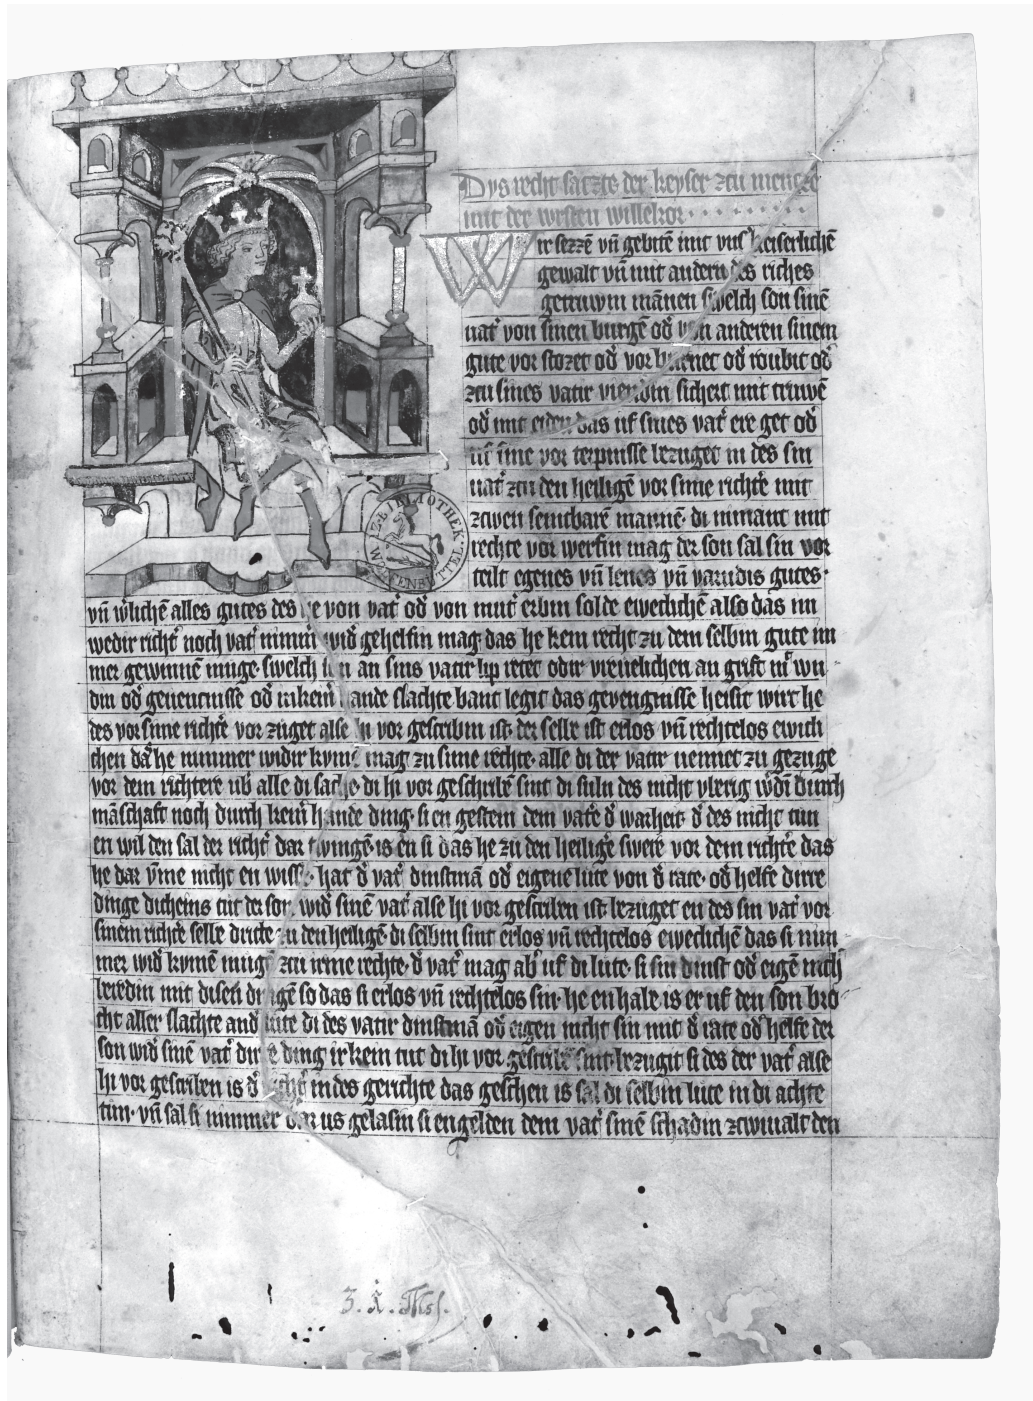 Dys recht satzte der keyser zcu mencze
mit der vursten willekor
Wir sezzē vñ gebitē mit vnſ' keiserlichē
gewalt vñ mit andern des riches
getruwin mānen swelch son sinē
uat' von sinen burgē od' von anderen sinem
gute vor stozet od' vor burnet od' roubit od'
zcu sines vatir vienden sichert mit truwē
od' mit eiden das uf sines vat' ere get od'
uf sine vor terpnisse bezuget in des sin
uat' zcu den heiligē vor sime richt'e mit
zcwen semtbarē mannē di nimant mit
rechte vor werfin mag der son sal sin vor
teilt egenes vñ lenes vñ varndis gutes
vñ w'lichē alles gutes des he von vat' od' von mut' erbin solde ewechichē also das im
wedir richt' noch vat' nimm' wid' gehelfin mag das he kein recht zu dem selbin gute nu
mer gewinnē muge swelch son an sins vatir lip retet odir vreuelichen an grift mit wu
din od' geuencnisse od' in kein' hande slachte bant legit das gevengnisse heisit wirt he
des vor sime richt'e vor zuget alse hi vor gescribin ist der selbe ist erlos vñ rechtelos ewicli
chen daz he nummer widir kyme mag zu sime rechte alle di der vatir nennet zu gezuge
vor dem richtere ub' alle di sache di hi vor geschribē sint di suln des nicht vberig w'dē durch
māschaft noch durch kein' hande ding si en gesten dem vat'e d' warheit d' des nicht tun
en wil den sal der richt' dar twingē is en si das he zu den heilig'e swere vor dem richt'e das
he dar vme nicht en wisse hat d' vat' dinstmā od' eigene lute von d' rate od' helfe dirre
dinge dicheins tut der son wid' sinē vat' alse hi vor gescriben ist bezuget en des sin vat' vor
sinem richt'e selbe dritte zu den heiligē di selbin sint erlos vñ rechtelos eweclichē das si num
mer wid' kymē mugē zcu irme rechte d' vat' mag ab' uf di lute si sin dinst od' eigē nich
beredin mit disen dingē so das si erlos vñ rechtelos sin he en habe is er uf den son bro
cht aller slachte and' lute di des vatir dinstmā od' eigen nicht sin mit d' rate od' helfe der
son wid' sinē vat' dirre ding ir kein tut di hi vor gescribē sint bezugit si des der vat' alse
hi vor gescriben is d' richt' in des gerichte das geschen is sal di selbin lute in di achte
tun vñ sal si nummer dar us gelasin si en gelden dem vat' sinē schadin zcwiualt den
BIBLIOTHEK WOLFENBÜTTEL
3. 1. Mss.